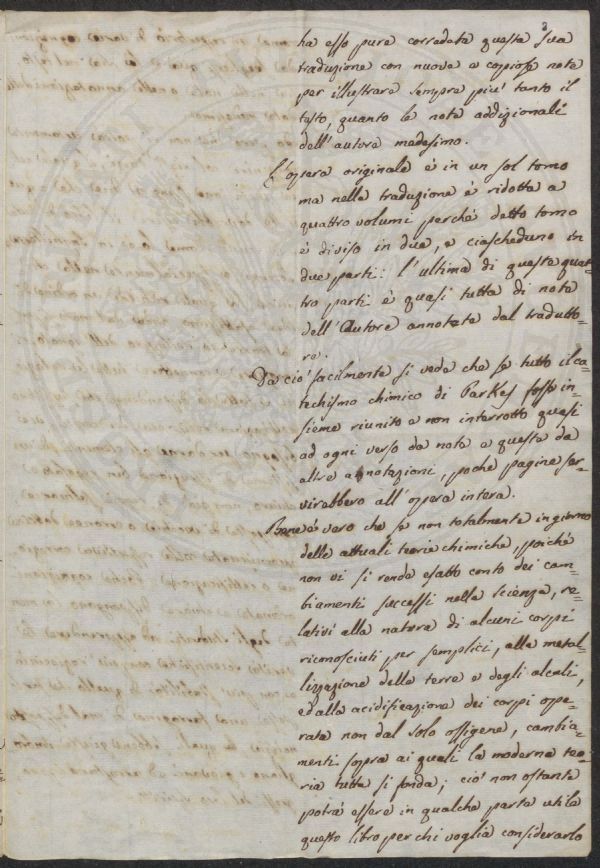 2
ha esso pure corredata questa sua
traduzione con nuove e copiose note
per illustrare sempre piu' tanto il
testo, quanto le note addizionali
dell'autore medesimo.
L'opera originale è in un sol tomo
ma nella traduzione è ridotta a
quattro volumi perchè detto tomo
è diviso in due, e ciascheduno in
due parti: l'ultima di queste quat=
tro parti è quasi tutta di note
dell'Autore annotate dal tradutto=
re.
Da ciò facilmente si vede che se tutto il ca=
techismo chimico di Parkes fosse in=
sieme riunito e non interrotto quasi
ad ogni verso da note e queste da
altre annotazioni, poche pagine ser=
virebbero all'opera intera.
Bene è vero che se non totalmente in giorno
delle attuali teorie chimiche, poichè
non vi si rende esatto conto dei cam=
biamenti successi nella scienza, re=
lativi alla natura di alcuni corpi
riconosciuti per semplici, alla metal=
lizzazione delle terre e degli alcali,
ed alla acidificazione dei corpi ope=
rata non dal solo ossigene, cambia=
menti sopra ai quali la moderna teo=
ria tutta si fonda; ciò non ostante
potrà essere in qualche parte utile
questo libro per chi voglia considerarlo